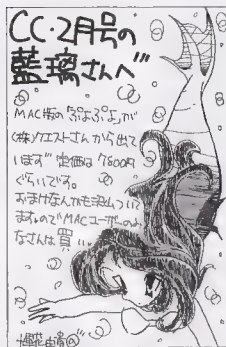 CC・2月号の
藍璃さんへ"
MAC版の「ぷよぷよ」が
(株)クエストさんから出て
います"定価は7800円
ぐらいです。
おまけなんかも沢山ついて
ますのでMACユーザーのみ
なさんは買い